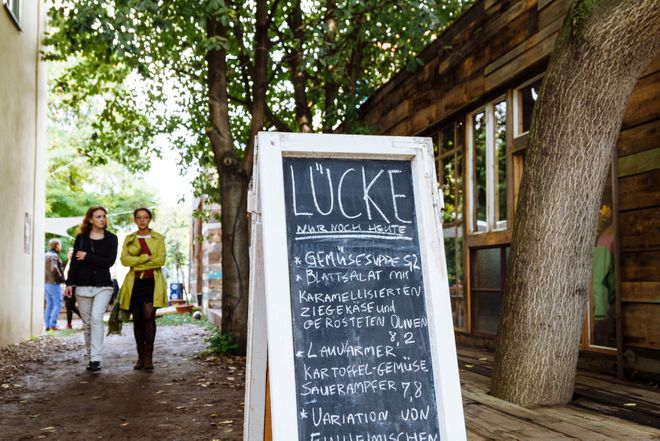 LÜCKE
NUR NOCH HEUTE
* GEMÜSESUPPE 5,2
* BLATTSALAT MIT
KARAMELLISIERTEN
ZIEGEKÄSE UND
GEROSTETEN OLIVEN
8,2
* LAUWARMER
KARTOFFEL-GEMÜSE
SAUERAMPFER 7,8
* VARIATION VON
EINHEIMISCHEN